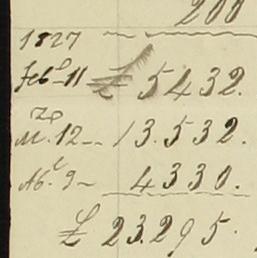 200
1827
Feb.º 11 £ 5432.
M.zo 12 -- 13.532.
Ab.l 9 - 4330.
£ 23.295.